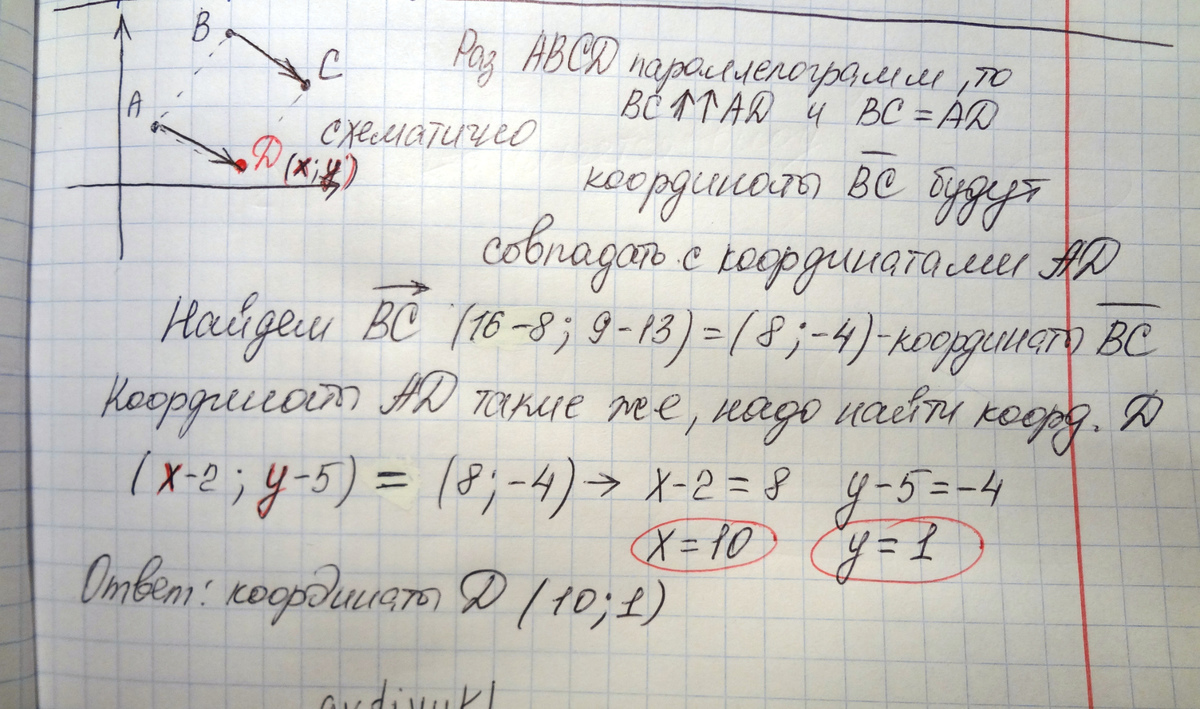 B
C
A
D (x; y)
схематично
Раз ABCD параллелограмм, то
BC ↑↑ AD и BC = AD
координаты BC будут
совпадать с координатами AD
Найдем BC (16-8; 9-13) = (8; -4) - координаты BC
Координаты AD такие же, надо найти коорд. D
(x-2; y-5) = (8; -4) → x-2 = 8 y-5 = -4
x = 10 y = 1
Ответ: координаты D (10; 1)